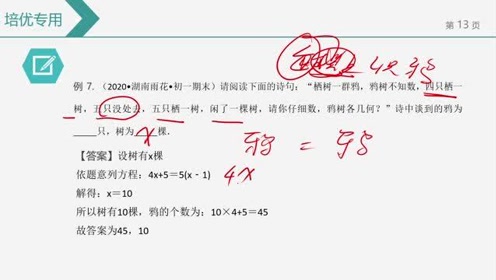 培优专用
第 13 页
4只鸦
例 7.（2020•湖南雨花•初一期末）请阅读下面的诗句：“栖树一群鸦，鸦树不知数，四只栖一
树，五只没处去，五只栖一树，闲了一棵树，请你仔细数，鸦树各几何？”诗中谈到的鸦为
____只，树为 x 棵．
鸦 = 鸦
【答案】设树有x棵
依题意列方程：4x+5＝5(x﹣1)
4x
解得：x＝10
所以树有10棵，鸦的个数为：10×4+5＝45
故答案为45，10